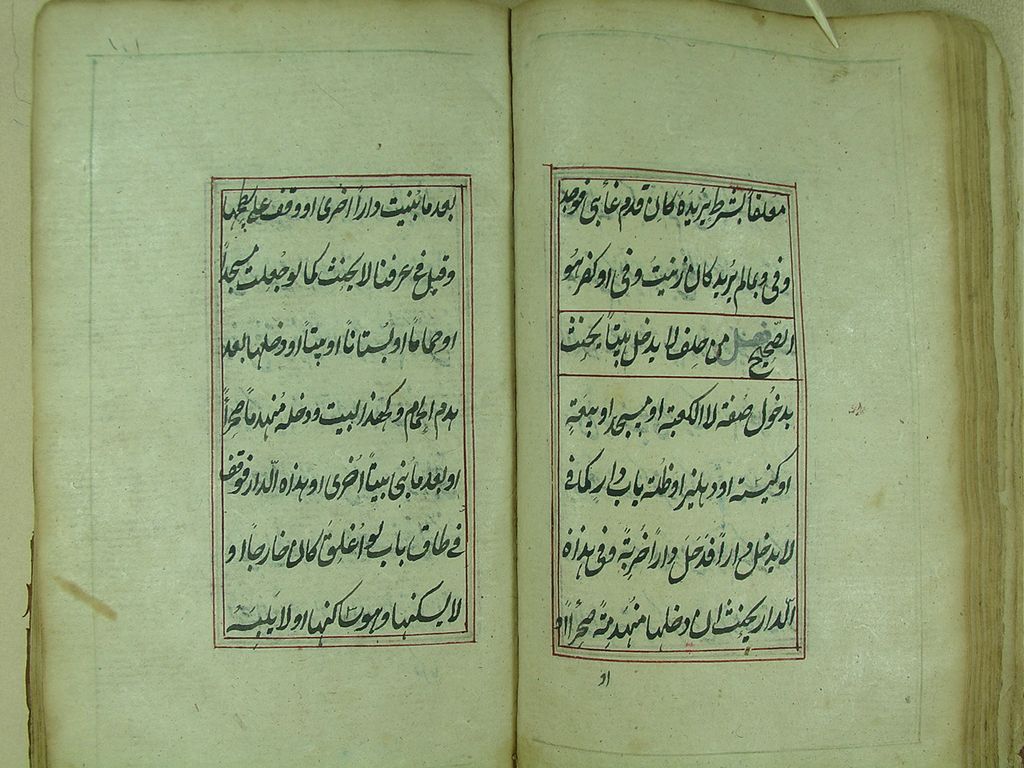 معلقا بشرط يريده كان قدم غائبى فوجد
وفى وبما لم يرد كان زنيت وفى او كفر هو
الصحيح فصل من حلف لا يدخل بيتا يحنث
بدخول صفة لا الكعبة او مسجد او بيعة
او كنيسة او دهليز او ظلة باب دار كما فى
لا يدخل دارا فدخل دارا خربة وفى هذه
الدار يحنث ان دخلها منهدمة صحراء او
او
بعد ما بنيت دارا اخرى او وقف على سطحها
وقيل فى عرفنا لا يحنث كما لو جعلت مسجدا
او حماما او بستانا او بيتا او دخلها بعد
هدم الحمام وكهذا البيت ودخله منهدما صحراء
او بعد ما بنى بيتا اخرى او هذه الدار فوقف
فى طاق باب لو اغلق كان خارجا او
لا يسكنها وهو ساكنها او لا يلبسه